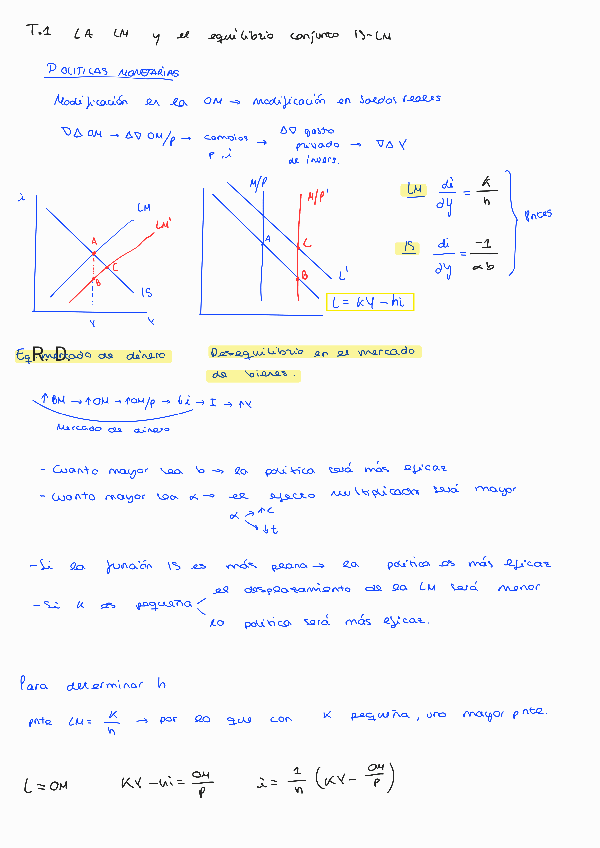 T.1 LA LM y el equilibrio conjunto IS-LM
POLITICAS MONETARIAS
Modificación en la OM → modificación en saldos reales
∇Δ OM → Δ∇ OM/p → cambios p, i → Δ∇ gasto privado de invers. → ∇Δ Y
i
LM
LM'
A
C
B
IS
Y
Y
M/P
M/P'
A
C
B
L'
L = KY - hi
LM di/∂y = K/h
IS di/∂y = -1/αb
Pntes
R. D.
Desequilibrio en el mercado
de bienes.
↑BM → ↑OM → ↑OM/p → ↓i → I → ↑Y
Mercado de dinero
- Cuanto mayor sea b → la política será más eficaz
- Cuanto mayor sea α → el efecto multiplicador será mayor
α → ↑c
↓t
- Si la función IS es más plana → la política es más eficaz
- Si K es pequeña
el desplazamiento de la LM será menor
la política será más eficaz.
Para determinar h
pnte LM = K/h → por lo que con K pequeña, una mayor pnte.
L = OM KY - hi = OM/P i = 1/h (KY - OM/P)